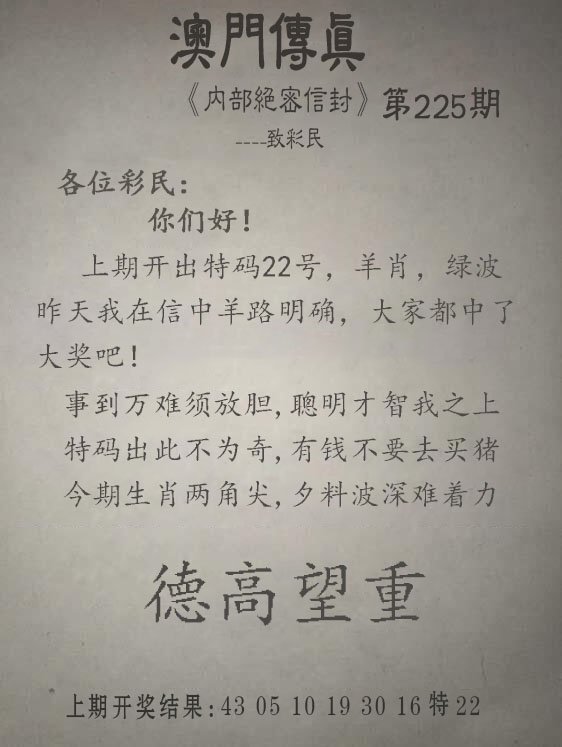 澳門傳眞
《内部絕密信封》第225期
----致彩民
各位彩民：
你们好！
上期开出特码22号，羊肖，绿波
昨天我在信中羊路明确，大家都中了
大奖吧！
事到万难须放胆，聪明才智我之上
特码出此不为奇，有钱不要去买猪
今期生肖两角尖，夕料波深难着力
德高望重
上期开奖结果：43 05 10 19 30 16 特 22